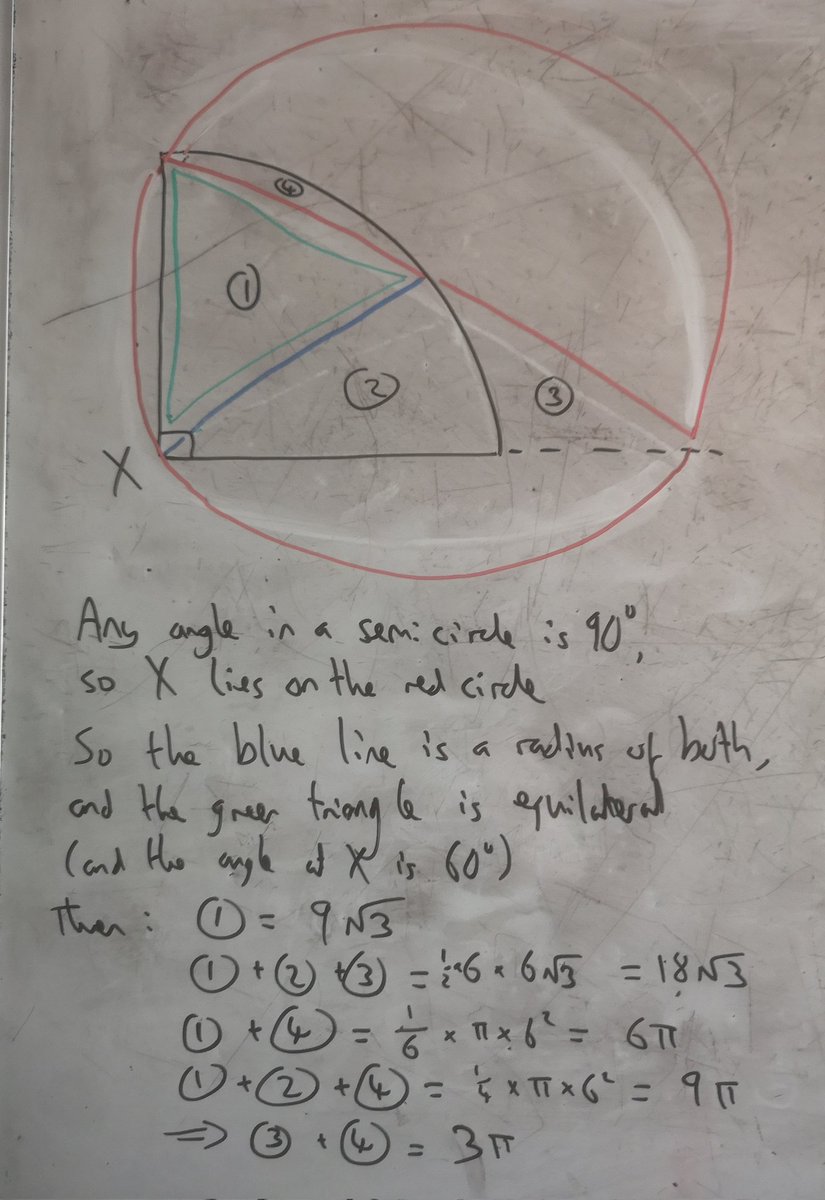 ④
①
②
③
X
Any angle in a semicircle is 90°,
so X lies on the red circle
So the blue line is a radius of both,
and the green triangle is equilateral
(and the angle at X is 60°)
Then: ① = 9√3
① + ② + ③ = ½×6 × 6√3 = 18√3
① + ④ = 1/6 × π × 6² = 6π
① + ② + ④ = ¼ × π × 6² = 9π
⇒ ③ + ④ = 3π